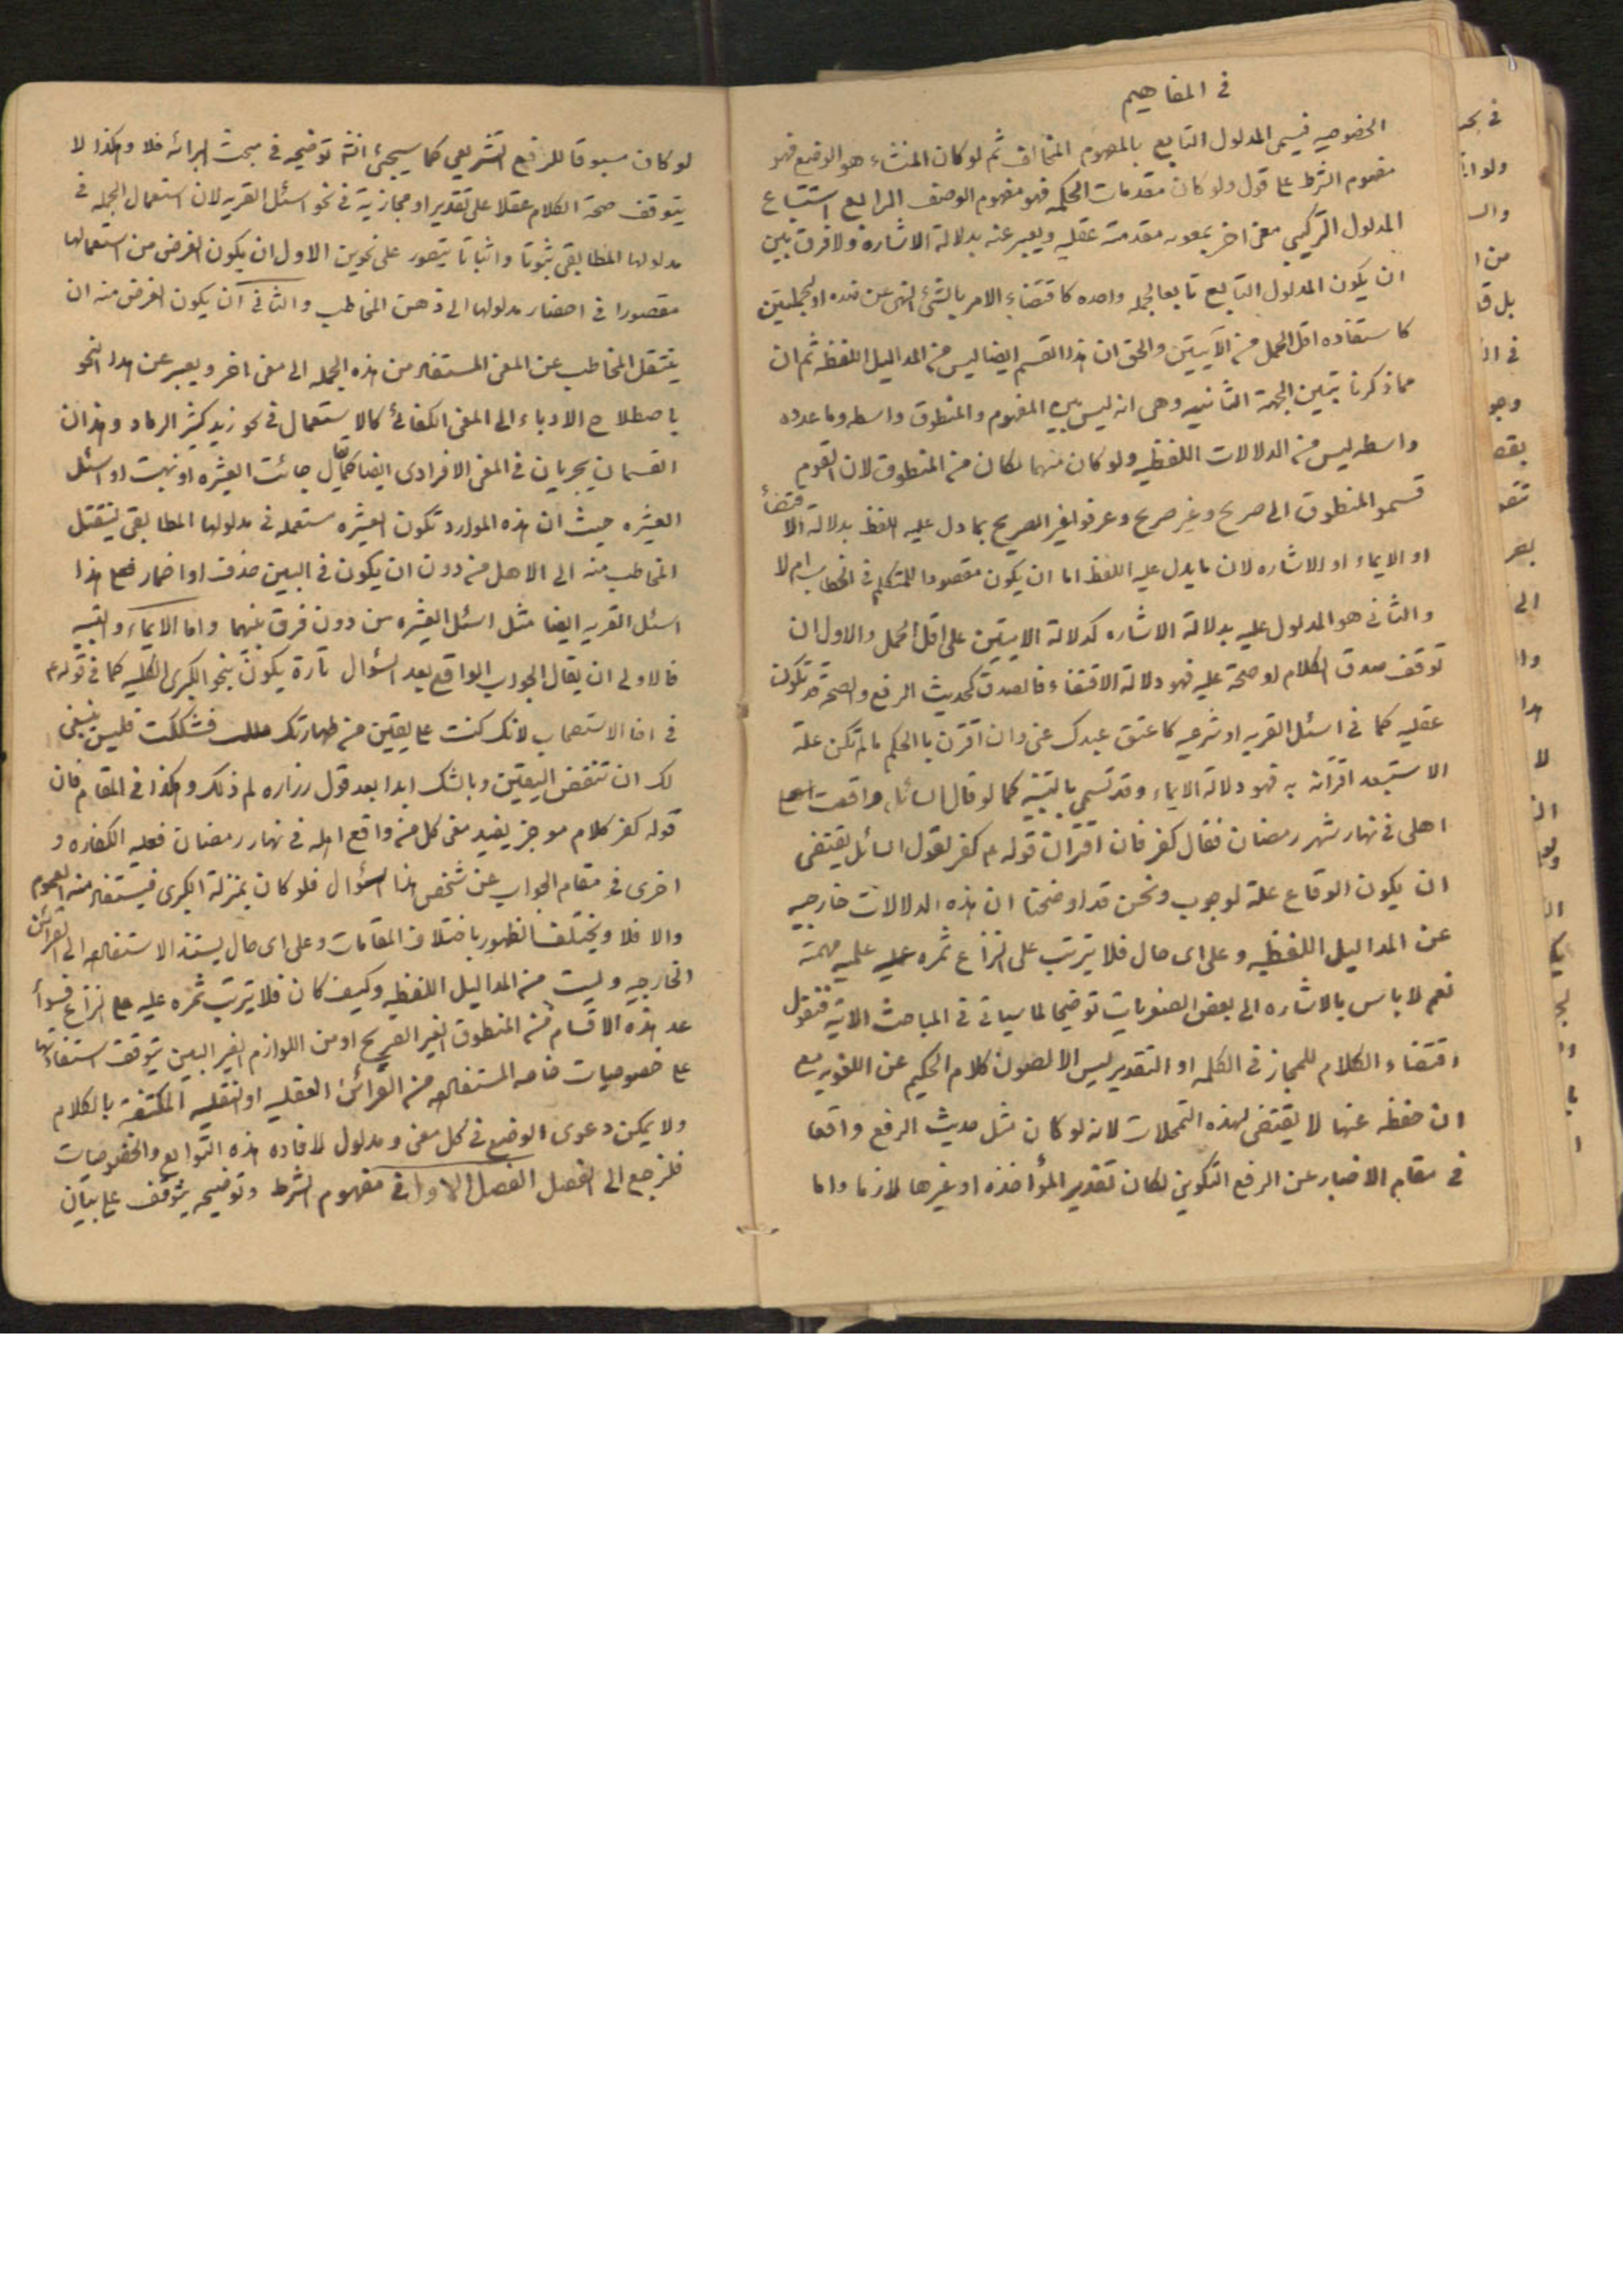 في المفاهيم
الخصوصيه فيسمى المدلول التابع بالمفهوم المخالف ثم لو كان المنشاء هو الوضع فهو
مفهوم الشرط على قول ولو كان مقدمات الحكمه فهو مفهوم الوصف الرابع استتباع
المدلول التركيبي معنى اخر بمعونه مقدمة عقليه ويعبر عنه بدلالة الاشاره ولا فرق بين
ان يكون المدلول التابع تابعا لجمله واحده كاقتضاء الامر بالشئ النهى عن ضده او لجملتين
كاستفاده اقل الحمل من الآيتين والحق ان هذا القسم ايضا ليس من المداليل اللفظيه ثم ان
مما ذكرنا تبين الجهة الثانيه وهى انه ليس بين المفهوم والمنطوق واسطه وما عدوه
واسطه ليس من الدلالات اللفظيه ولو كان منهما لكان من المنطوق لان القوم
قسموا المنطوق الى صريح وغير صريح وعرفوا غير الصريح بما دل عليه اللفظ بدلالة الاقتضاء
او الايماء او الاشاره لان ما يدل عليه اللفظ اما ان يكون مقصودا للمتكلم فى الخطاب ام لا
والثانى هو المدلول عليه بدلالة الاشاره كدلالة الايتين على اقل الحمل والاول ان
توقف صدق الكلام او صحته عليه فهو دلالة الاقتضاء فالصدق كحديث الرفع والصحة قد تكون
عقليه كما فى اسئل القريه او شرعيه كاعتق عبدك عنى وان اقترن بالحكم ما لم تكن علة
الاستبعد اقترانه به فهو دلالة الايماء وقد تسمى بالتنبيه كما لو قال السائل واقعت
اهلى فى نهار شهر رمضان فقال كفر فان اقتران قوله ع كفر لقول السائل يقتضى
ان يكون الوقاع علة لوجوب ونحن قد اوضحنا ان هذه الدلالات خارجيه
عن المداليل اللفظيه وعلى اى حال فلا يترتب على النزاع ثمره عليه علميه مهمة
نعم لا باس بالاشاره الى بعض الصغريات توضيحا لما سياتى فى المباحث الاتيه فنقول
اقتضاء الكلام للمجاز فى الكلمه او التقدير ليس الا لصون كلام الحكيم عن اللغويه مع
ان حفظه عنها لا يقتضى لهذه التمحلات لانه لو كان مثل حديث الرفع واقعا
فى مقام الاخبار عن الرفع التكوينى لكان تقدير المؤاخذه او غيرها لازما واما
لو كان مسوقا للرفع التشريعى كما سيجئ انشه توضيحه فى مبحث البرائه فلا وهكذا لا
يتوقف صحة الكلام عقلا على تقدير او مجازية فى نحو اسئل القريه لان استعمال الجمله فى
مدلولها المطابقى ثبوتا واثباتا يتصور على نحوين الاول ان يكون الغرض من استعمالها
مقصورا فى احضار مدلولها الى ذهن المخاطب والثانى ان يكون الغرض منه ان
ينتقل المخاطب عن المعنى المستفاد من هذه الجمله الى معنى اخر ويعبر عن هذا النحو
باصطلاح الادباء الى المعنى الكنائى كالاستعمال فى نحو زيد كثير الرماد وهذان
القسمان يجريان فى المعنى الافرادى ايضا كما يقال جائت العشيره او نهبت او اسئل
العشيره حيث ان هذه الموارد تكون العشيره مستعمله فى مدلولها المطابقى ينتقل
المخاطب منه الى الاهل من دون ان يكون فى البين حذف او اضمار فعلى هذا
اسئل القريه ايضا مثل اسئل العشيره من دون فرق بينهما واما الايماء والتنبيه
فالاولى ان يقال الجواب الواقع بعد السؤال تارة يكون بنحو الكبرى الكليه كما فى قوله ع
فى الاستصحاب لانك كنت على يقين من طهارتك فشككت فليس ينبغى
لك ان تنقض اليقين وبالشك ابدا بعد قول زراره لم ذلك وهكذا فى المقام فان
قوله كفر كلام موجز يفيد معنى كل من واقع اهله فى نهار رمضان فعليه الكفاره و
اخرى فى مقام الجواب عن شخص هذا السؤال فلو كان بمنزلة الكبرى فيستفاد منه العموم
والا فلا ويختلف الظهور باختلاف المقامات وعلى اى حال يستند الاستفاده الى القرائن
الخارجيه وليست من المداليل اللفظيه وكيف كان فلا يترتب ثمره عليه على النزاع فسواء
عد هذه الاقسام من المنطوق الغير الصريح او من اللوازم الغير البين يتوقف استفادتها
على خصوصيات خاصه المستفاده من القرائن العقليه او النقليه المكتنفة بالكلام
ولا يمكن دعوى الوضع فى كل معنى ومدلول لافاده هذه التوابع والخصوصيات
فلنرجع الى الفصل الفصل الاول فى مفهوم الشرط وتوضيحه يتوقف على بيان